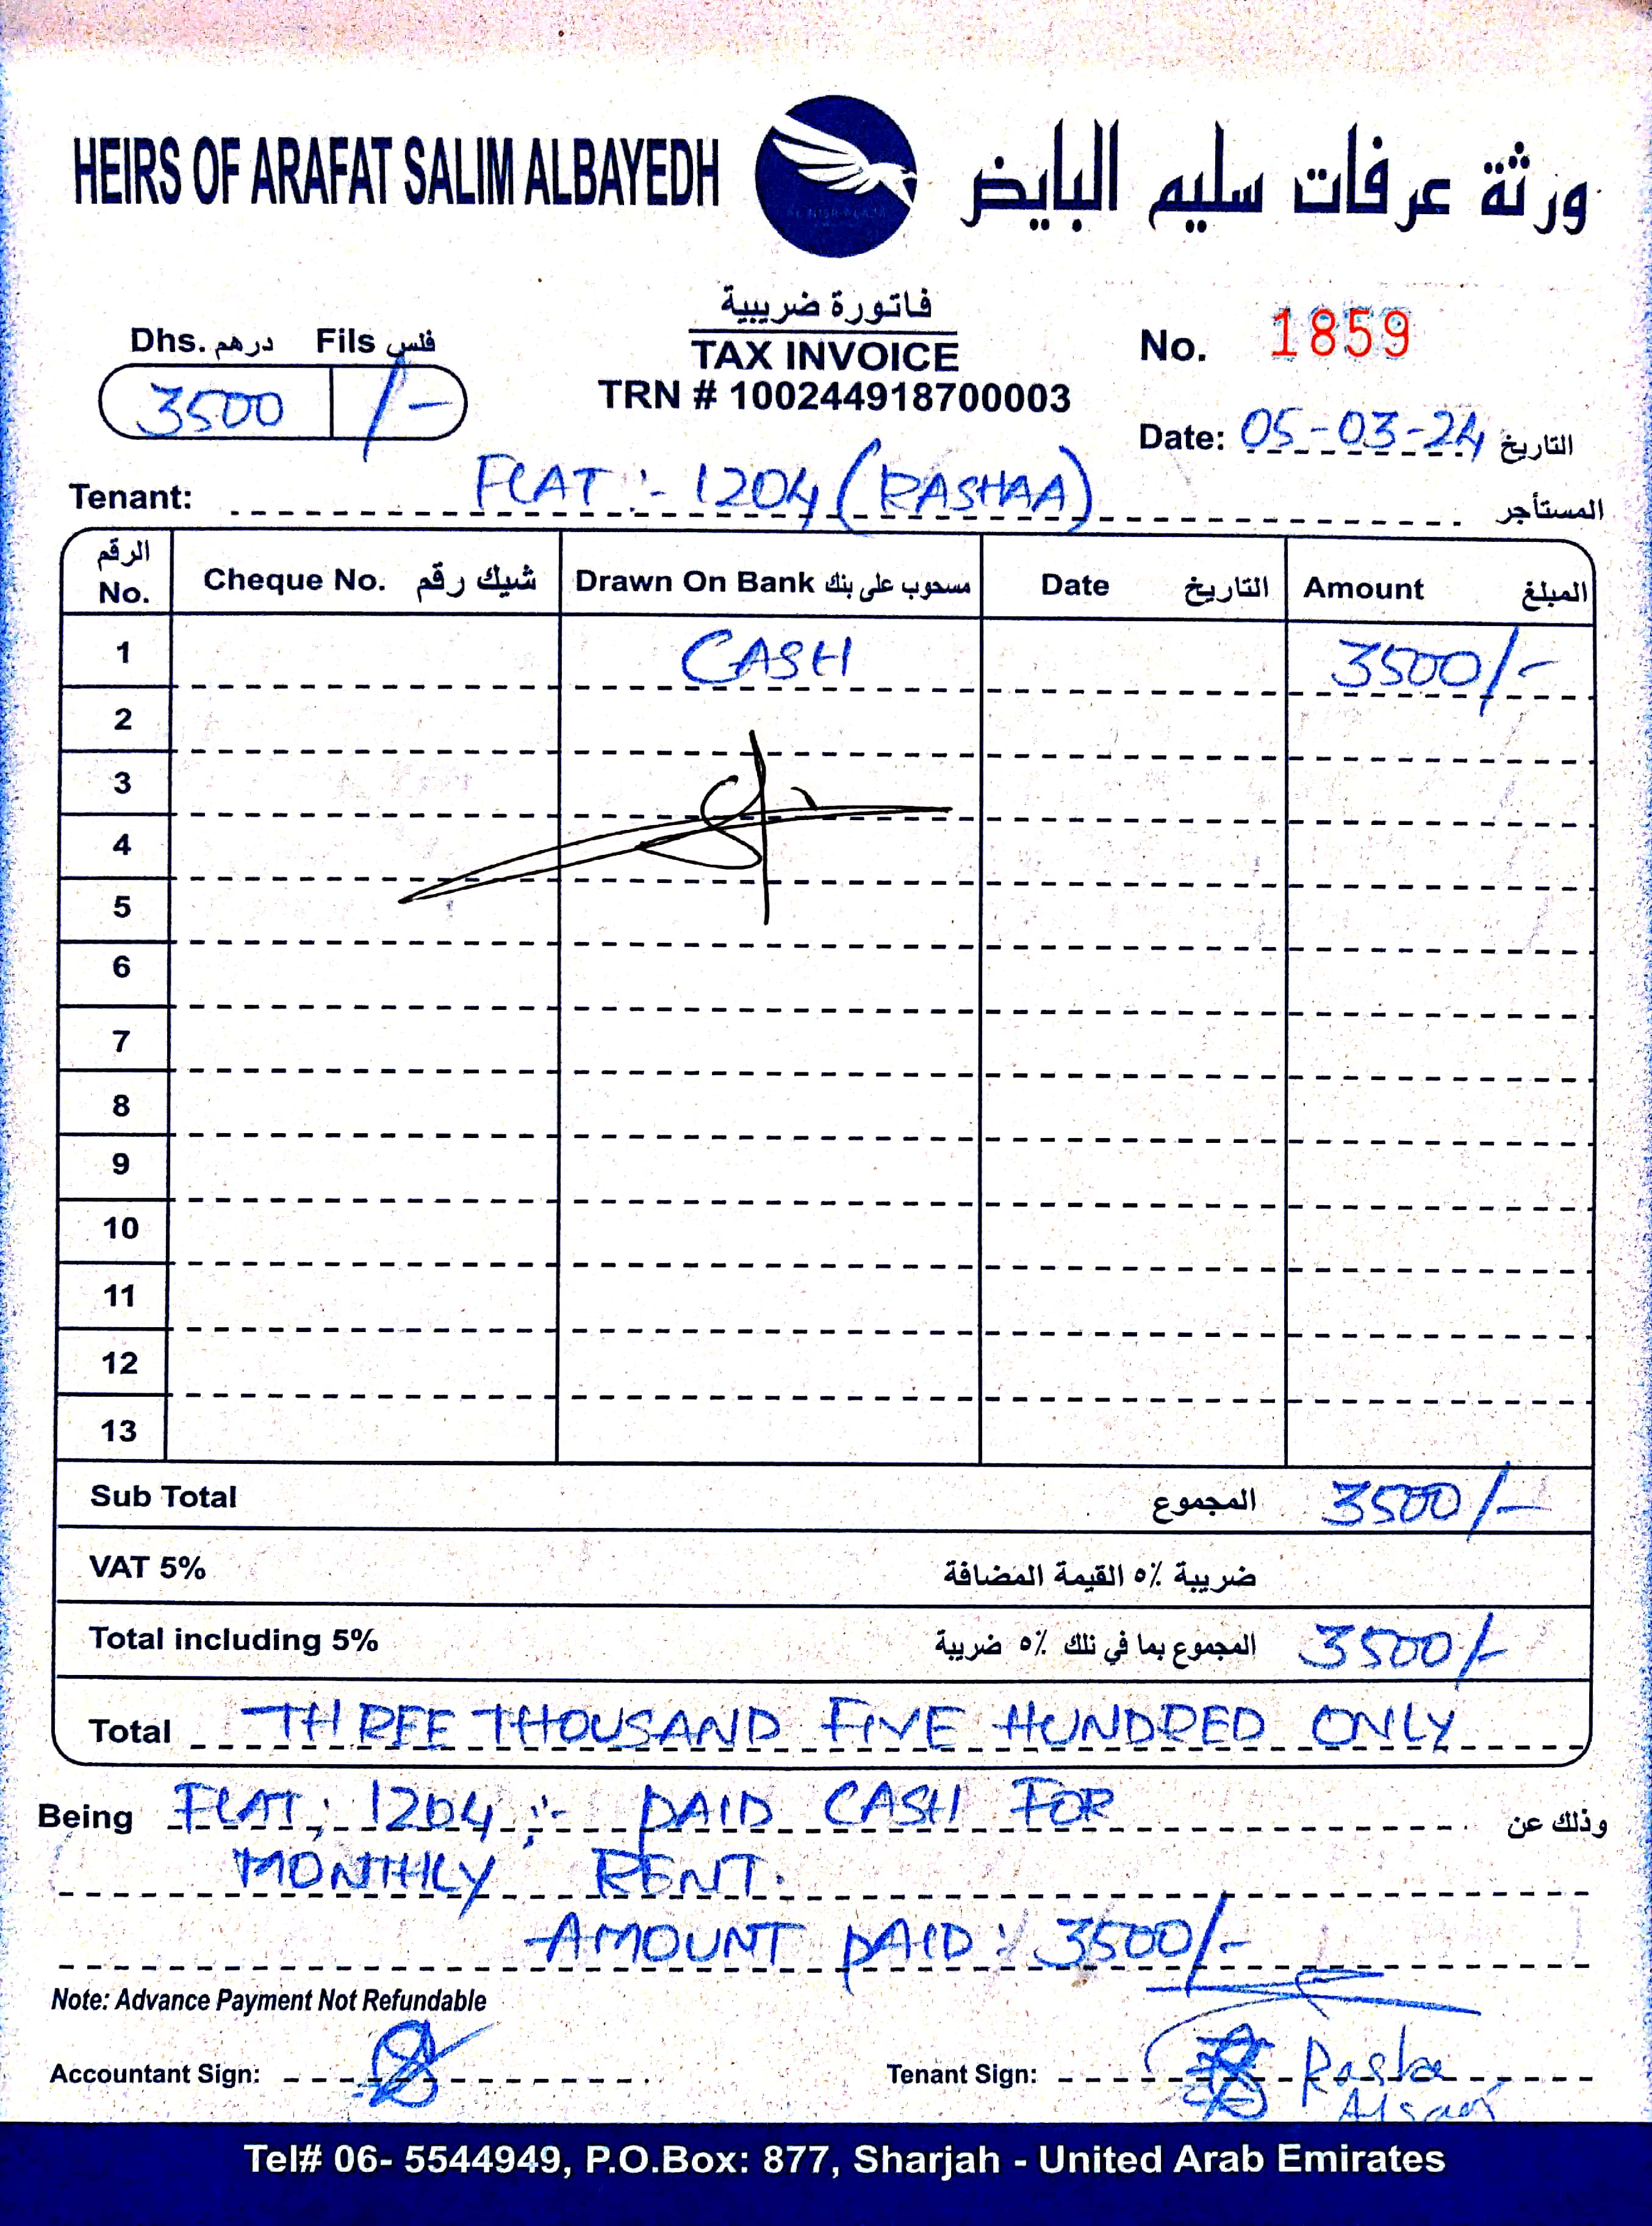 HEIRS OF ARAFAT SALIM ALBAYEDH ورثة عرفات سليم البايض
فاتورة ضريبية
TAX INVOICE
TRN # 100244918700003
Dhs. درهم Fils فلس
3500 /-
No. 1859
Date: 05-03-24 التاريخ
Tenant: FLAT :- 1204 (RASHAA) المستأجر
الرقم No. Cheque No. شيك رقم Drawn On Bank مسحوب على بنك Date التاريخ Amount المبلغ
1 CASH 3500/-
2
3
4
5
6
7
8
9
10
11
12
13
Sub Total المجموع 3500/-
VAT 5% ضريبة ٥٪ القيمة المضافة
Total including 5% المجموع بما في ذلك ٥٪ ضريبة 3500/-
Total THREE THOUSAND FIVE HUNDRED ONLY
Being FLAT: 1204 :- PAID CASH FOR وذلك عن
MONTHLY RENT.
AMOUNT PAID: 3500/-
Note: Advance Payment Not Refundable
Accountant Sign: Tenant Sign: Rasha
Tel# 06- 5544949, P.O.Box: 877, Sharjah - United Arab Emirates